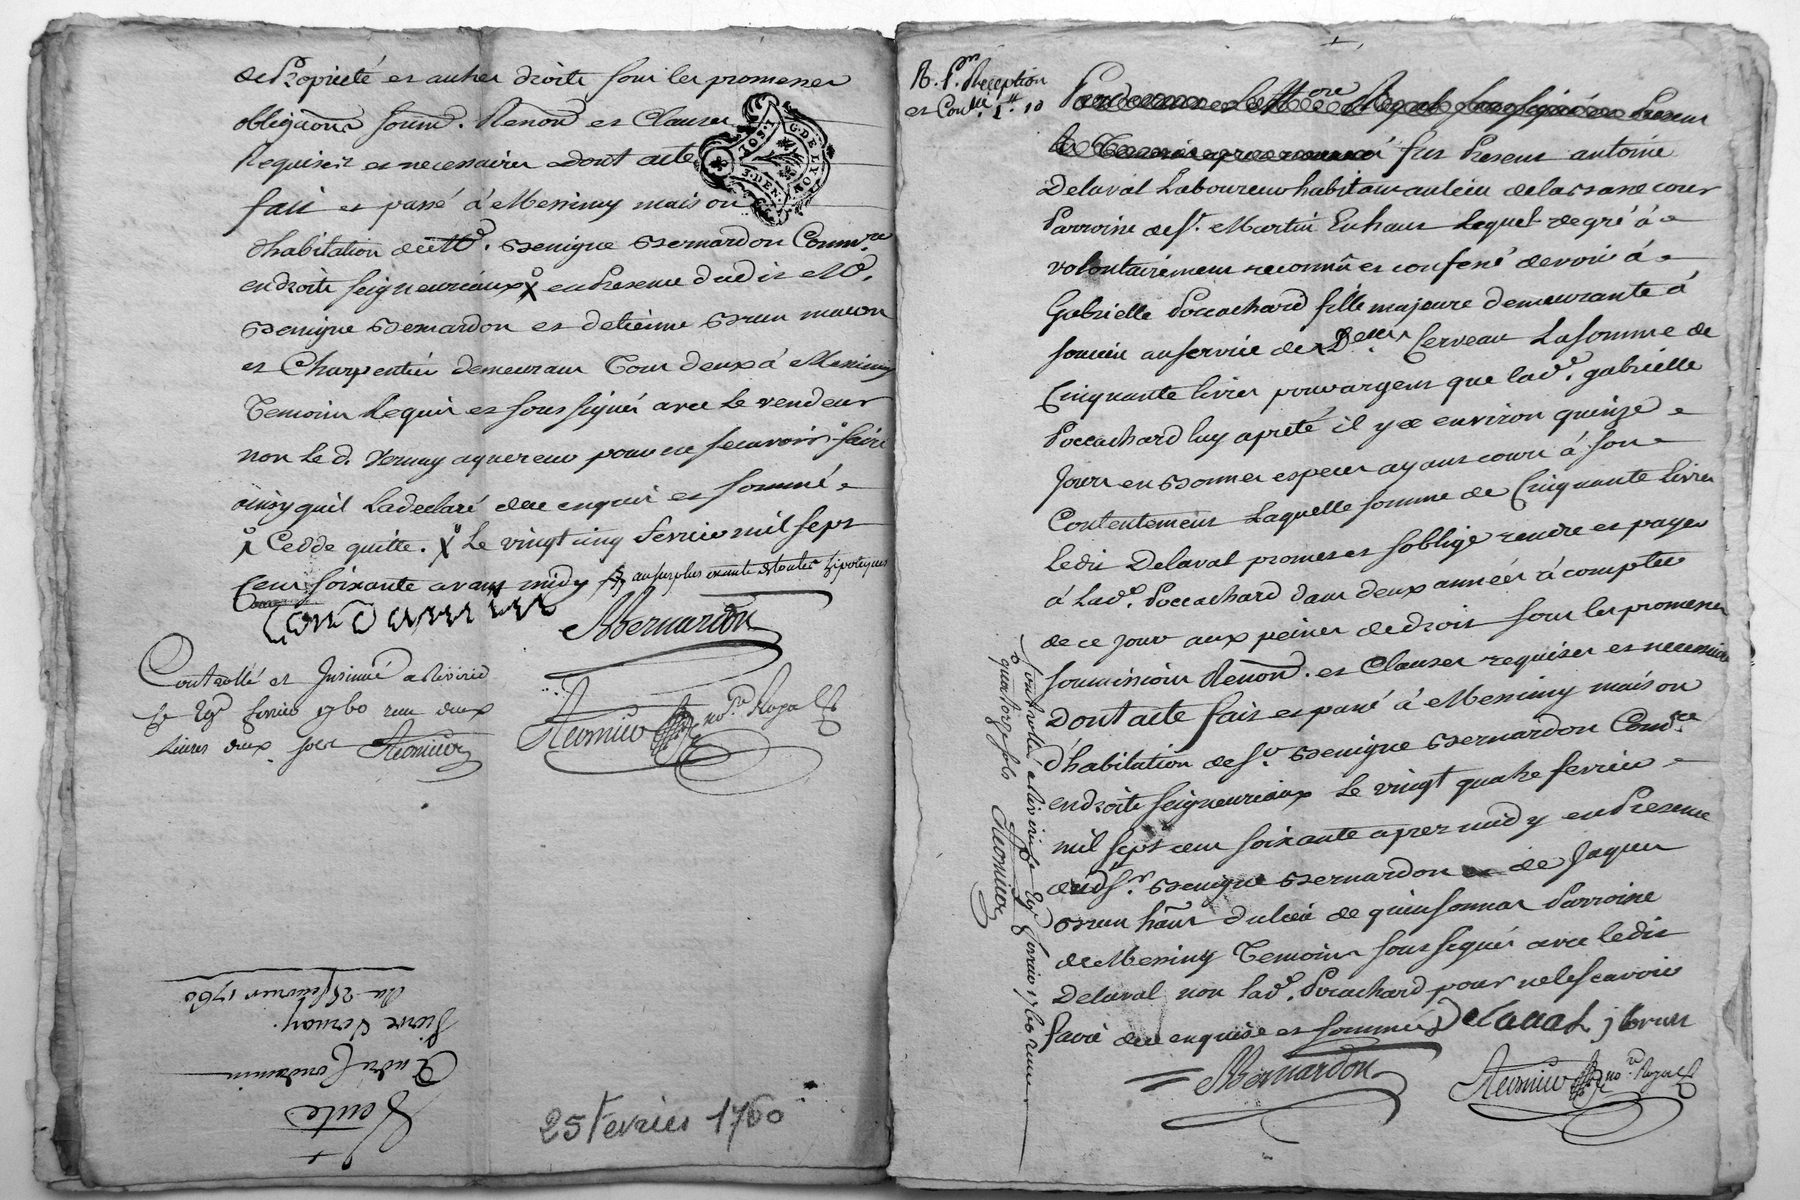 de Propriété et autres droits sous les promesses
obligaons soumd. Renond et Clauses
Requises et necessaires dont acte
fait et passé à Messimy maison
d'habitation de Me. Benigne Bernardon Commre
en droits seigneuriaux en Presence dudit Me.
Benigne Bernardon et detienne Brun macon
et Charpentier demeurans Tous deux à Messimy
Temoins Requis et sous signés avec le vendeur
non le d. Vernay aquereur pour ne scavoir faire
ainsy quil La declaré de ce enquis et sommé
Cedde quitte. Le vingt cinq fevrier mil sept
Cent soixante avant midy au surplus exante de toutes hipoteques
Condamin
BBernardon
Controllé et Insinué a
le 29e fevrier 1760 reçu deux
livres deux sols
no.re Royal
G. DE LYON
SOL
DEN.
Vente
André Condamin
Pierre Vernay
du 25 fevrier 1760
25 Fevrier 1760
R. Pr. Reception
et Conlle 1# 10
Present
fut Present antoine
Delaval Laboureur habitant au lieu de la
Parroise de St. Martin Enhaut Lequel de gré à
volontairement reconnu et confessé devoir à
Gabrielle Poccachard fille majeure demeurante à
au service des Delles Cerveau La somme de
Cinquante livres pour argent que lade. gabrielle
Poccachard luy a preté il y a environ quinze
Jours en Bonnes especes ayant cours à son
Contentement Laquelle somme de Cinquante livres
Ledit Delaval promet et soblige rendre et payer
à Lade. Poccachard dans deux années à compter
de ce jour aux peines de droit sous les promesses
soumissions Renond. et Clauses requises et necessaires
Dont acte fait et passé à Messimy maison
d'habitation de Sr. Benigne Bernardon Comre
en droits seigneuriaux Le vingt quatre fevrier
mil sept cent soixante apres midy en Presence
dud Sr. Benigne Bernardon de Jaques
Brun hant du lieu de quinsonnas Parroise
de Messimy Temoins sous signés avec ledit
Delaval non lade. Pocachard pour ne le scavoir
faire de ce enquise et sommée Delaual j brun
BBernardon
no.re Royal
Controllé à le 29e fevrier 1760 reçu
quatorze sols